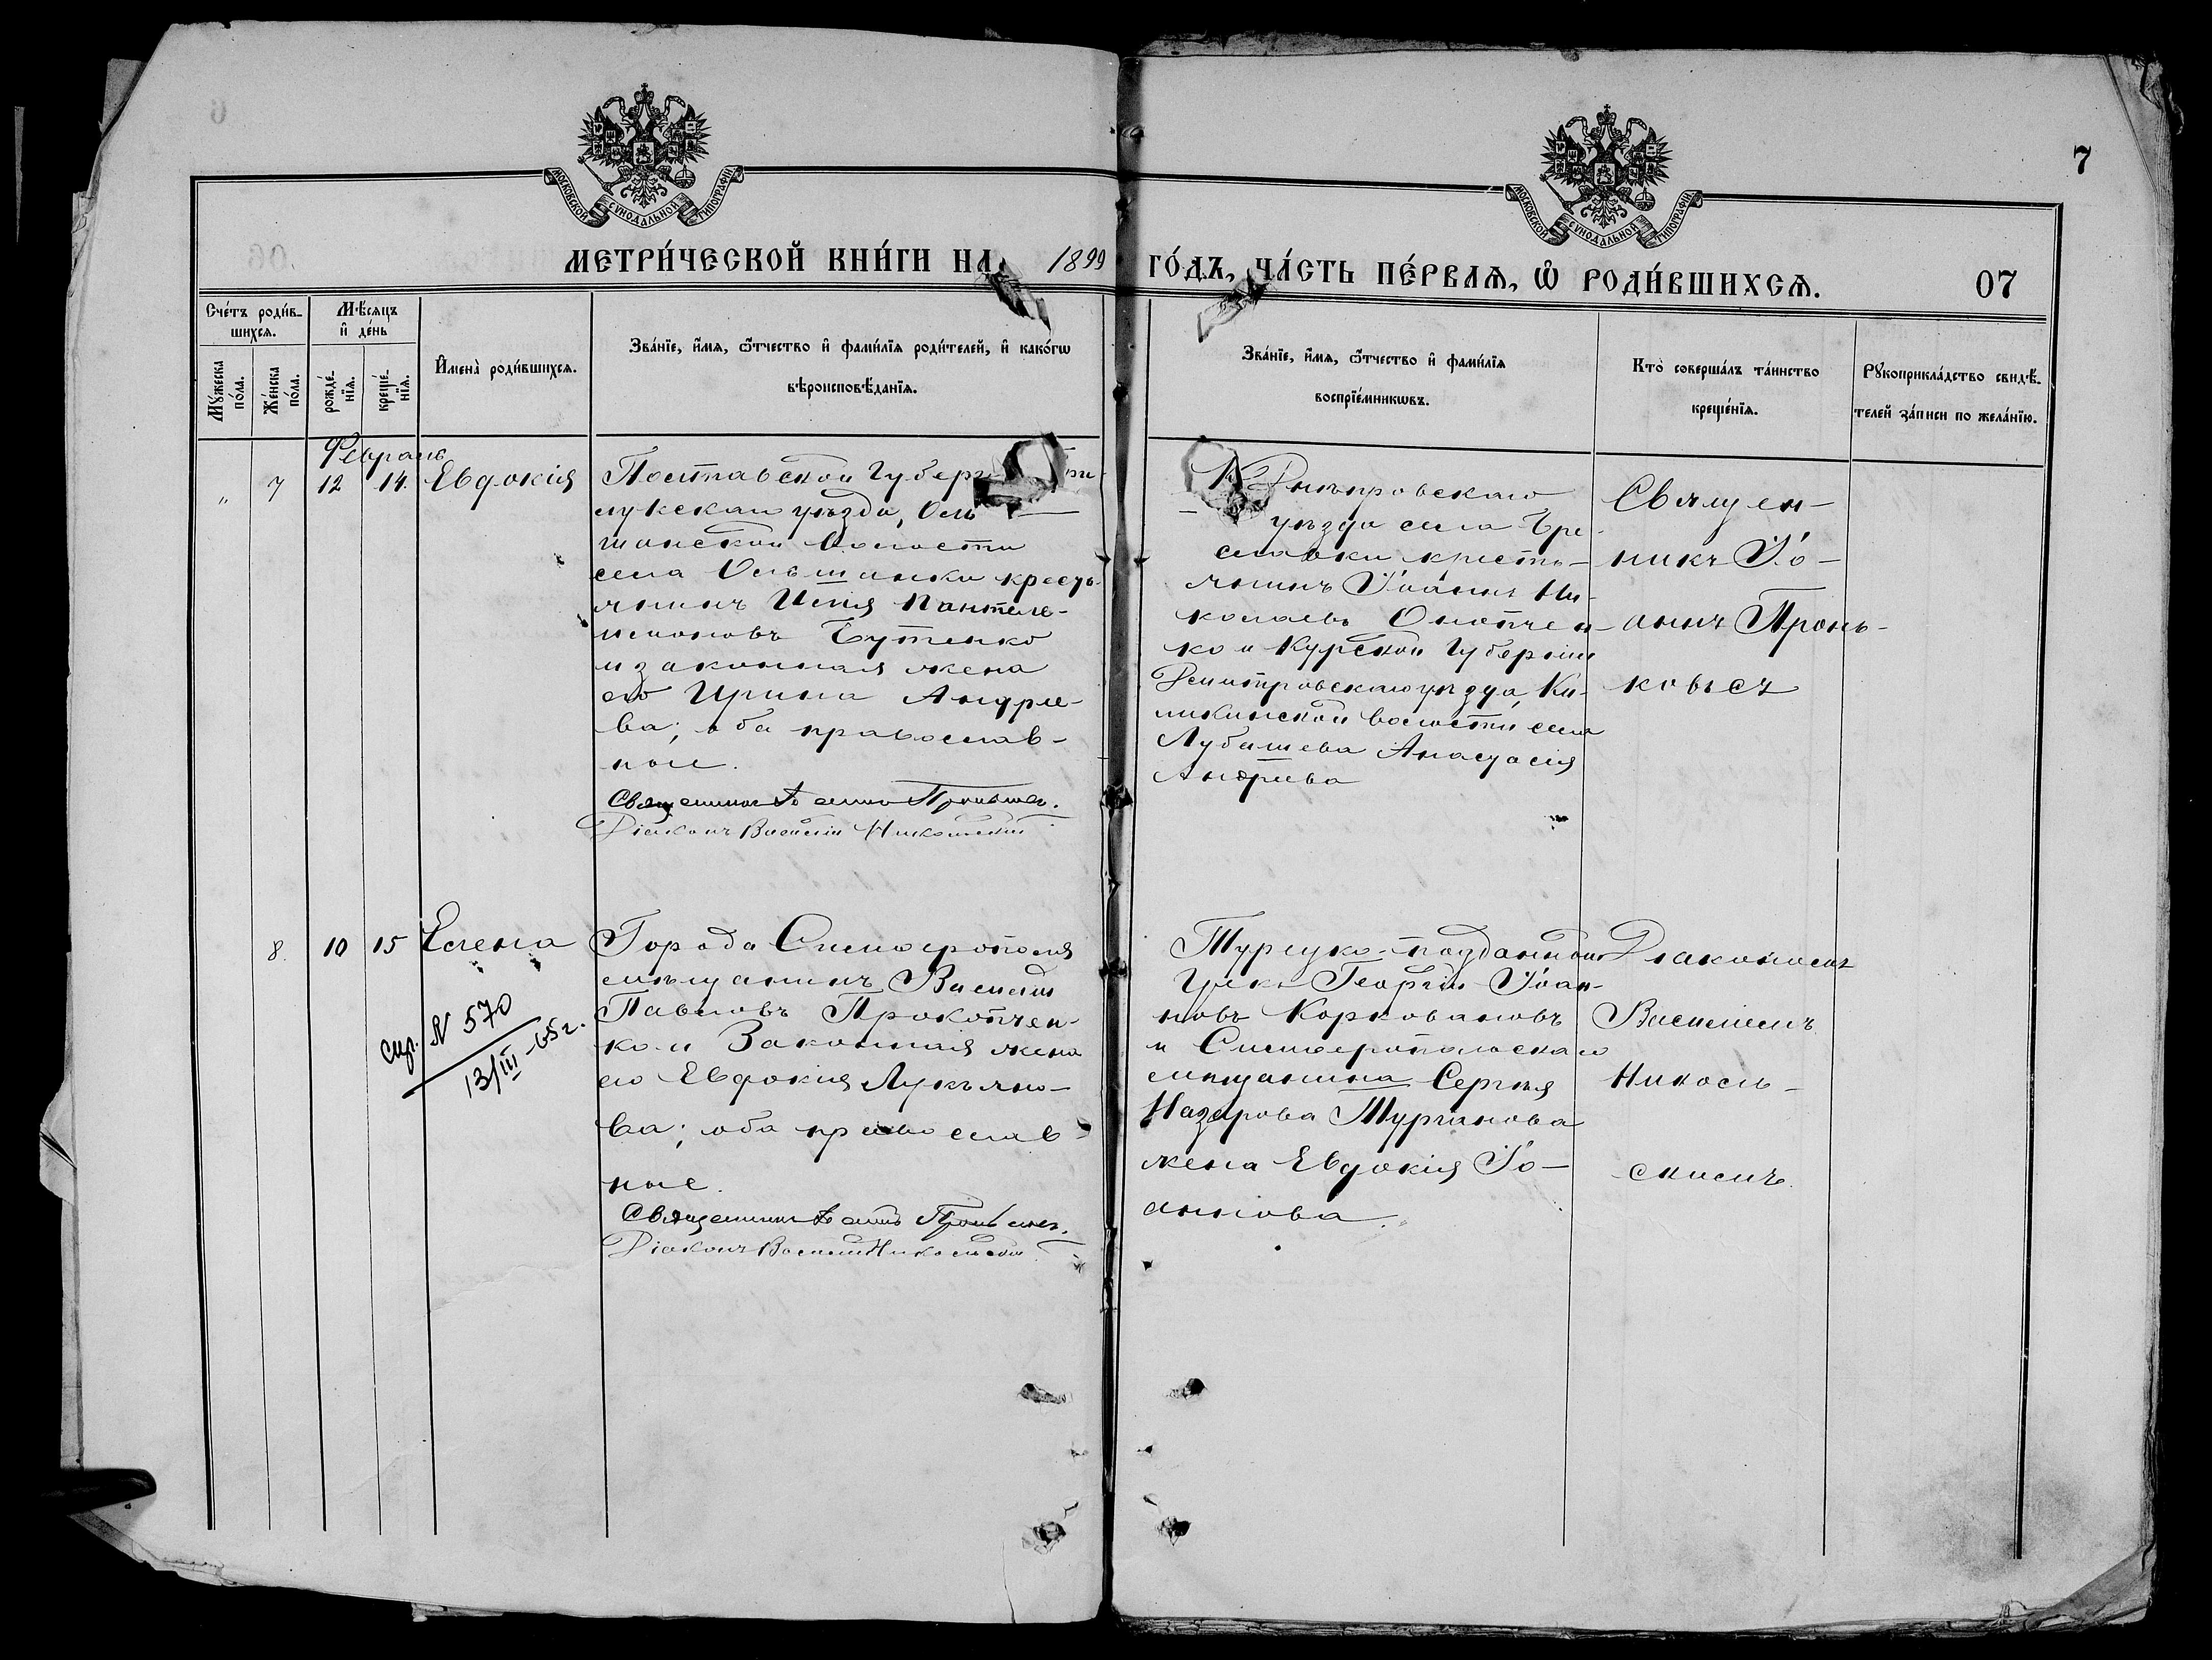 7
МОСКОВСКОЙ СУНОДАЛЬНОЙ ТИПОГРАФІИ
МОСКОВСКОЙ СУНОДАЛЬНОЙ ТИПОГРАФІИ
МЕТРИ́ЧЕСКОЙ КНИ́ГИ НА 1899 ГО́ДЪ, ЧА́СТЬ ПЕ́РВАѦ, Ѿ РОДИ́ВШИХСѦ.
07
Сче́тъ роди́в-
шихсѧ.
Мꙋ́жеска
по́ла.
Же́нска
по́ла.
Мѣ́сяцъ
и҆ де́нь
рожде́-
нїѧ.
креще́-
нїѧ.
И҆мена̀ роди́вшихсѧ.
Зва́нїе, и҆́мѧ, ѻ҆́тчество и҆ фами́лїѧ роди́телей, и҆ како́гѡ
вѣроисповѣ́данїѧ.
Зва́нїе, и҆́мѧ, ѻ҆́тчество и҆ фами́лїѧ
воспрїе́мникѡвъ.
Кто̀ соверша́лъ та́инство
креще́нїѧ.
Рꙋкоприкла́дство свидѣ́-
телей за́писи по жела́нїю.
Февраль
" 7 12 14. Евдокія
Полтавской Губер
лукскаго уѣзда, Оль
шанской волости
села Ольшанки кресть-
янинъ Илія Пантеле-
имоновъ Бутенко
и законная жена
его Ирина Андрее-
ва; оба православ-
ные.
Священникъ Іоаннъ Проньковъ.
Діаконъ Василій Никольскій
Днѣпровскаго
уѣзда села Бре-
славки кресть-
янинъ Іоаннъ Ни-
колаевъ Онопчен-
ко и Курской Губерніи
Дмитровскаго уѣзда,
волости села
Лубашева Анастасія
Андреева
Священ-
никъ Іо-
аннъ Проньь-
ковъ съ
8. 10 15 Елена
Спр. N 570
13/III-65г.
Города Симферополя
мѣщанинъ Василій
Павловъ Прокопчен-
ко и Законная жена
его Евдокия Лукъяно-
ва; оба православ-
ные.
Священникъ Іоаннъ Проньковъ.
Діаконъ Василій Никольскій
Турецко-подданный
Грекъ Георгій Іоан-
новъ Корковановъ
и Симферопольскаго
мѣщанина Сергѣя
Назарова Турчанова
жена Евдокія Іо-
аннова.
Діакономъ
Василіемъ
Николь-
скимъ.